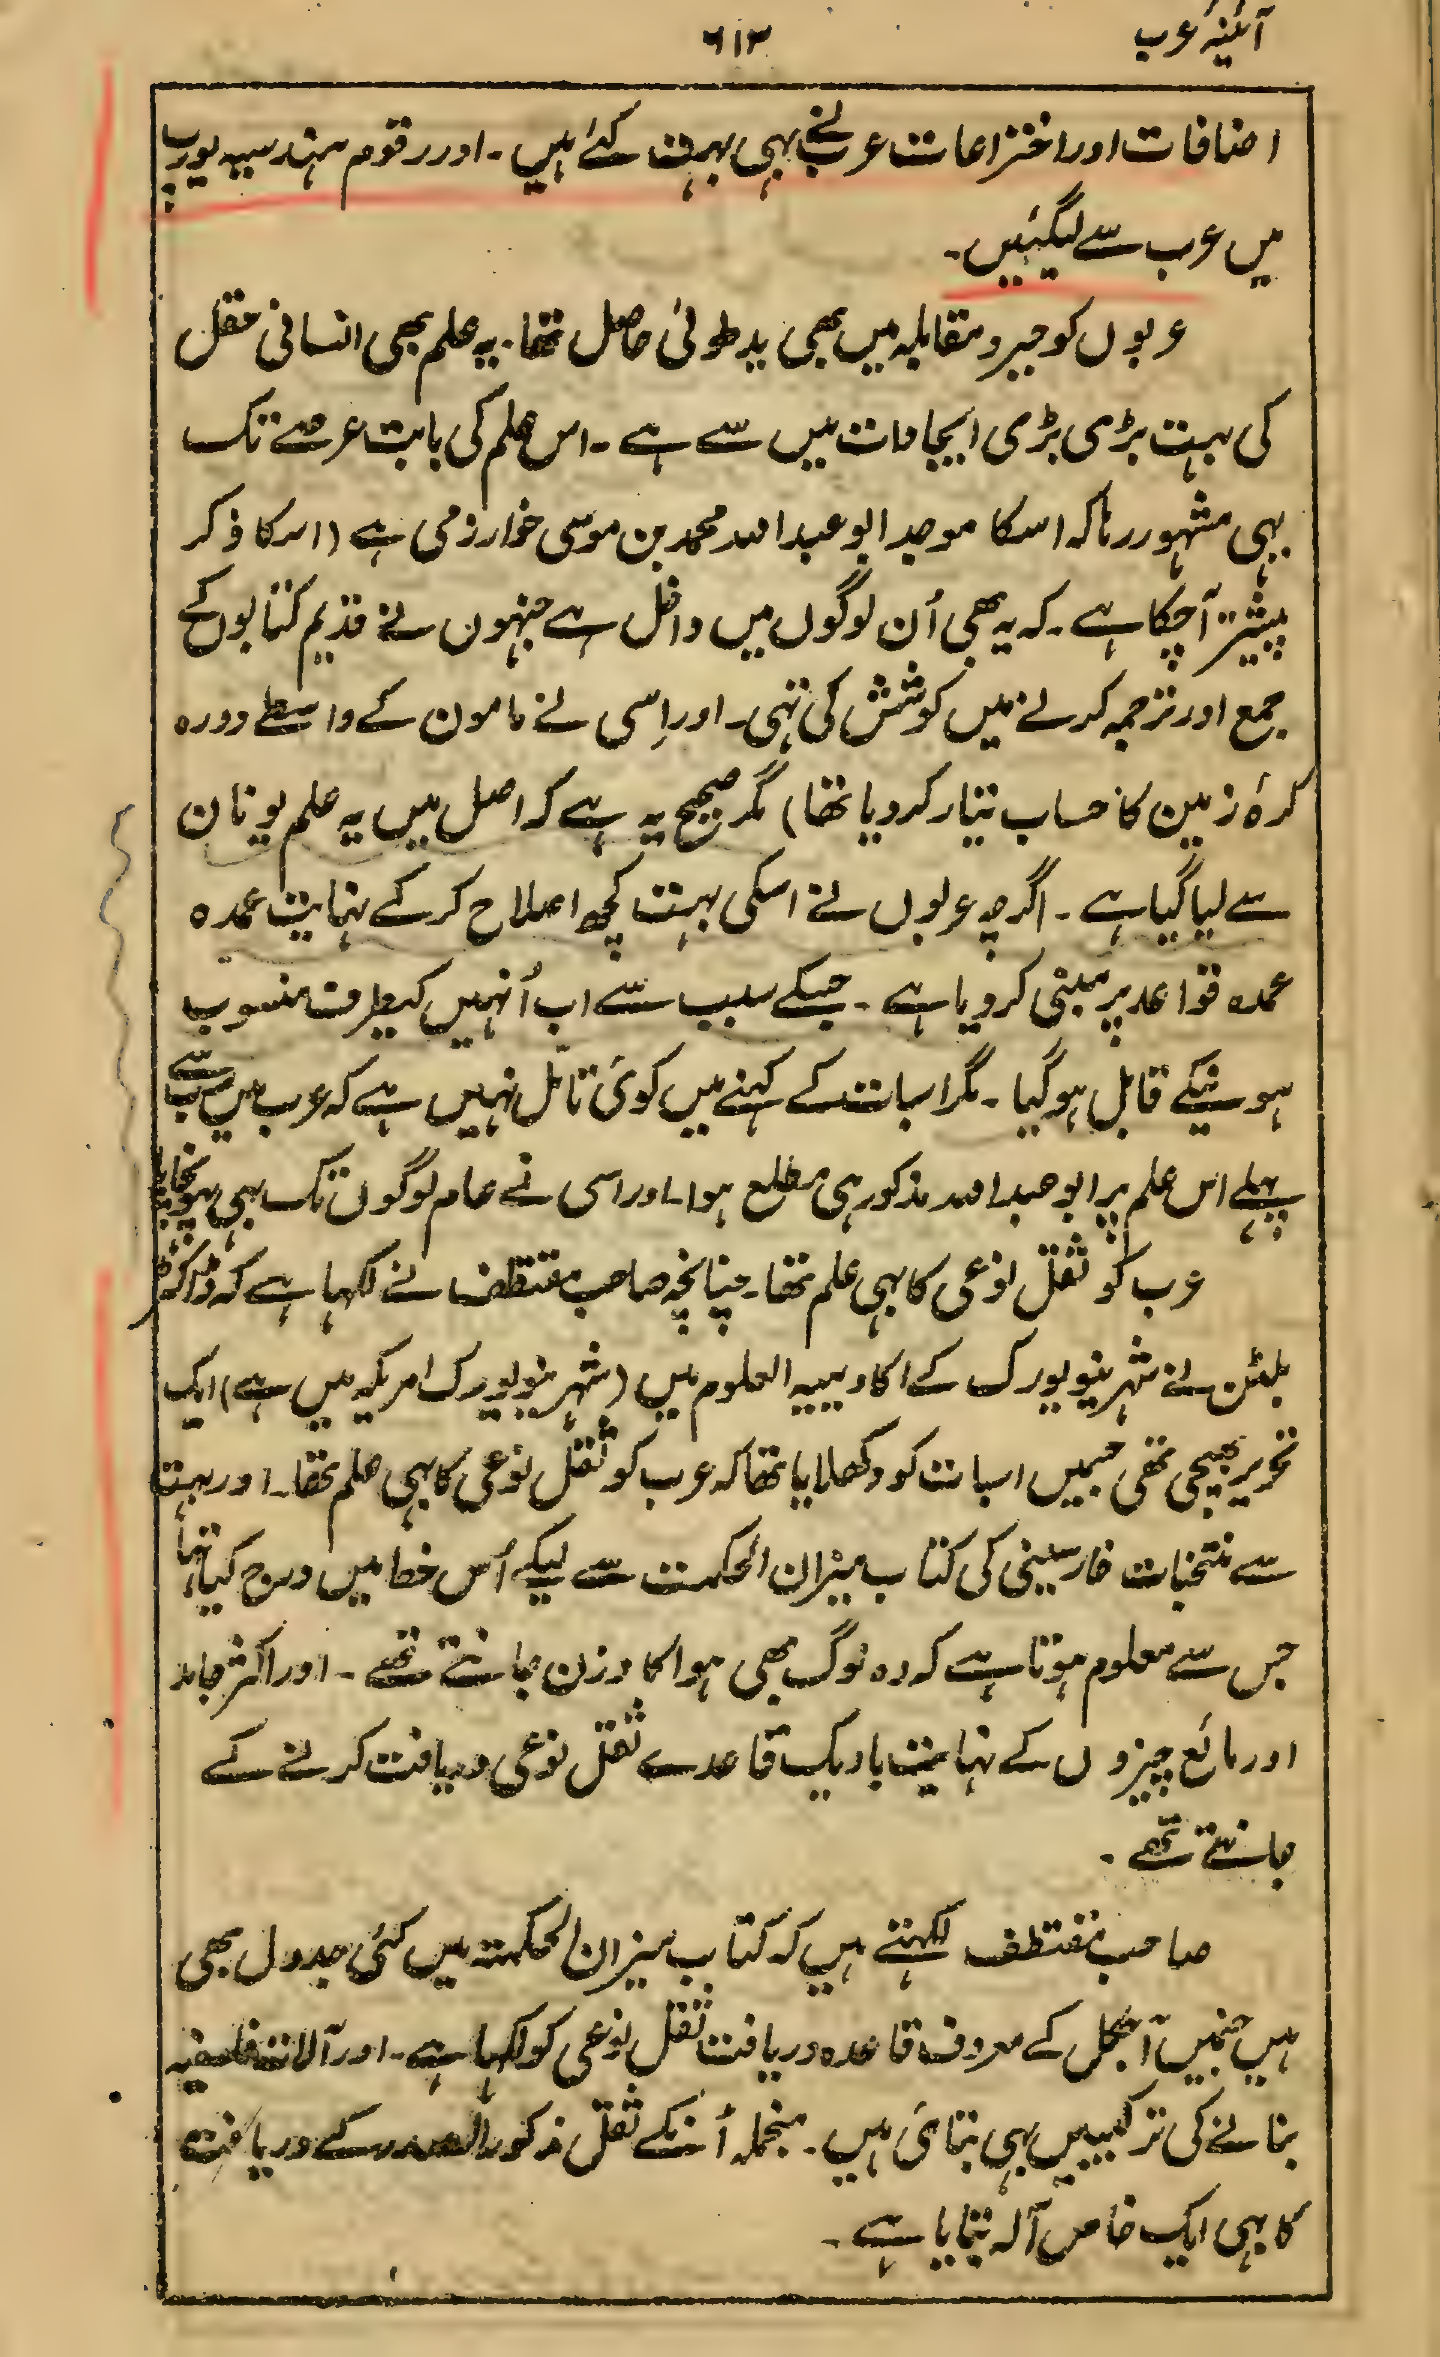 آئینۂ عرب
۶۱۳
اضافات اور اختراعات عرب نے بہی بہت کئے ہیں ۔ اور رقوم ہندسیہ یورپ
میں عرب سے لیگئیں ۔
عربوں کو جبر و مقابلہ میں بھی ید طولیٰ حاصل تھا ۔ یہ علم بھی انسانی عقل
کی بہت بڑی بڑی ایجادات میں سے ہے ۔ اس علم کی بابت عرصے تک
یہی مشہور رہا کہ اسکا موجد ابو عبد اللہ محمد بن موسی خوارزمی ہے (اسکا ذکر
پیشتر آچکا ہے ۔ کہ یہ بھی اُن لوگوں میں داخل ہے جنہوں نے قدیم کتابوں کے
جمع اور ترجمہ کرنے میں کوشش کی تہی ۔ اور اِسی نے مامون کے واسطے دورہ
کرۂ زمین کا حساب تیار کردیا تھا) مگر صحیح یہ ہے کہ اصل میں یہ علم یونان
سے لیا گیا ہے ۔ اگرچہ عربوں نے اسکی بہت کچھ اصلاح کرکے نہایت عمدہ
عمدہ قواعد پر مبنی کردیا ہے ۔ جسکے سبب سے اب اُنہیں کیطرف منسوب
ہونیکے قابل ہوگیا ۔ مگر اسبات کے کہنے میں کوئی تامّل نہیں ہے کہ عرب میں سب سے
پہلے اس علم پر ابو عبد اللہ مذکور ہی مطلع ہوا ۔ اور اسی نے عام لوگوں تک بہی پہونچایا
عرب کو ثقل نوعی کا بہی علم تھا ۔ چنانچہ صاحب مقتطف نے لکہا ہے کہ ڈاکٹر
بلٹن نے شہر نیویورک کے اکادیمیہ العلوم میں (شہر نیویورک امریکہ میں ہے) ایک
تحریر بھیجی تھی جسمیں اسبات کو دکھلایا تھا کہ عرب کو ثقل نوعی کا بہی علم تھا ۔ اور بہت
سے منتخبات خارسینی کی کتاب میزان الحکمت سے لیکے اُس خط میں درج کیا تہا
جس سے معلوم ہوتا ہے کہ وہ لوگ بھی ہوا کا وزن جانتے تھے ۔ اور اکثر جامد
اور مائع چیزوں کے نہایت باریک قاعدے ثقل نوعی دریافت کرنے کے
جانتے تھے ۔
صاحب مقتطف لکہتے ہیں کہ کتاب میزان الحکمۃ میں کئی جدول بھی
ہیں جنمیں آجکل کے معروف قاعدہ دریافت ثقل نوعی کو لکہا ہے ۔ اور آلات فلسفیہ
بنانے کی ترکیبیں بہی بتائی ہیں ۔ منجملہ اُنکے ثقل مذکور الصدر کے دریافت
کا بہی ایک خاص آلہ بتایا ہے ۔